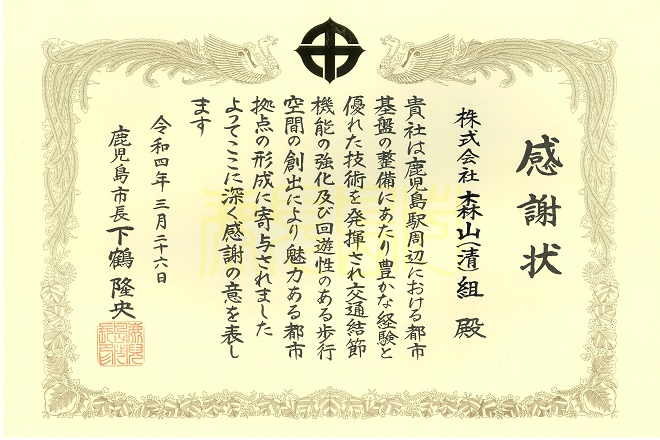 感謝状
株式会社 森山(清)組 殿
貴社は鹿児島駅周辺における都市
基盤の整備にあたり豊かな経験と
優れた技術を発揮され交通結節
機能の強化及び回遊性のある歩行
空間の創出により魅力ある都市
拠点の形成に寄与されました
よってここに深く感謝の意を表し
ます
令和四年三月二十六日
鹿児島市長 下鶴隆央